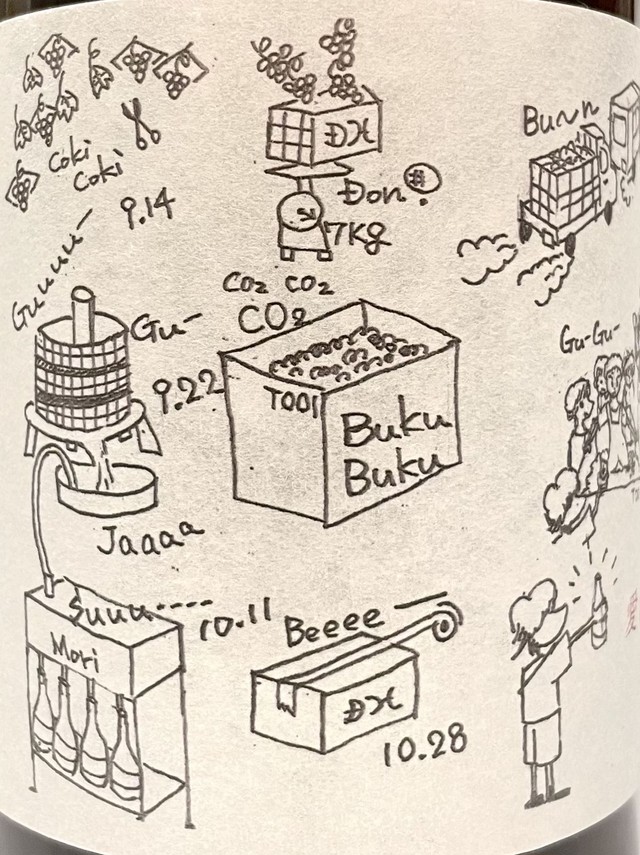 Coki
Coki
9.14
DX
Don!
7Kg
Bunn
Guuuu-
Gu-
9.22
CO2 CO2
CO2
TOOI
Buku
Buku
Gu-Gu-
Jaaaa
Suuu----
Mori
10.11
Beeee
DX
10.28
愛